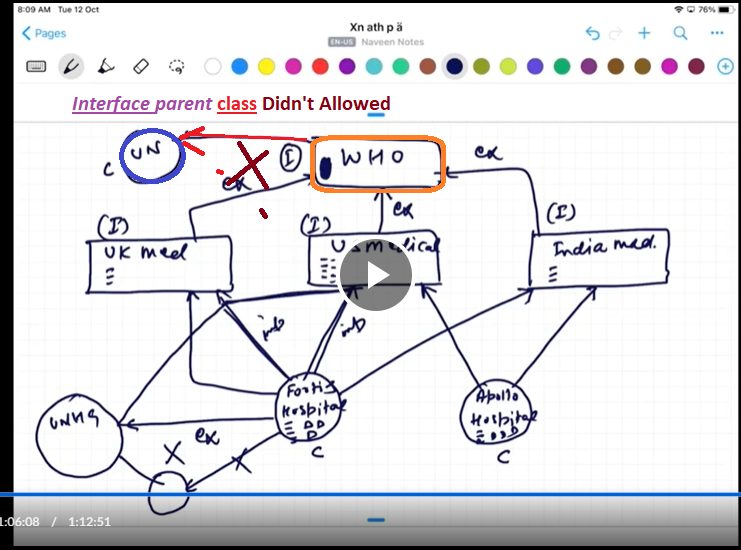 8:09 AM Tue 12 Oct
76%
Pages
Xn ath p ä
EN-US Naveen Notes
Interface parent class Didn't Allowed
C
UN
(I)
WHO
ex
ex
ex
(I)
UK med
(I)
US medical
(I)
India med.
UNHS
ex
Fortis
Hospital
C
Apollo
Hospital
C
1:06:08 / 1:12:51